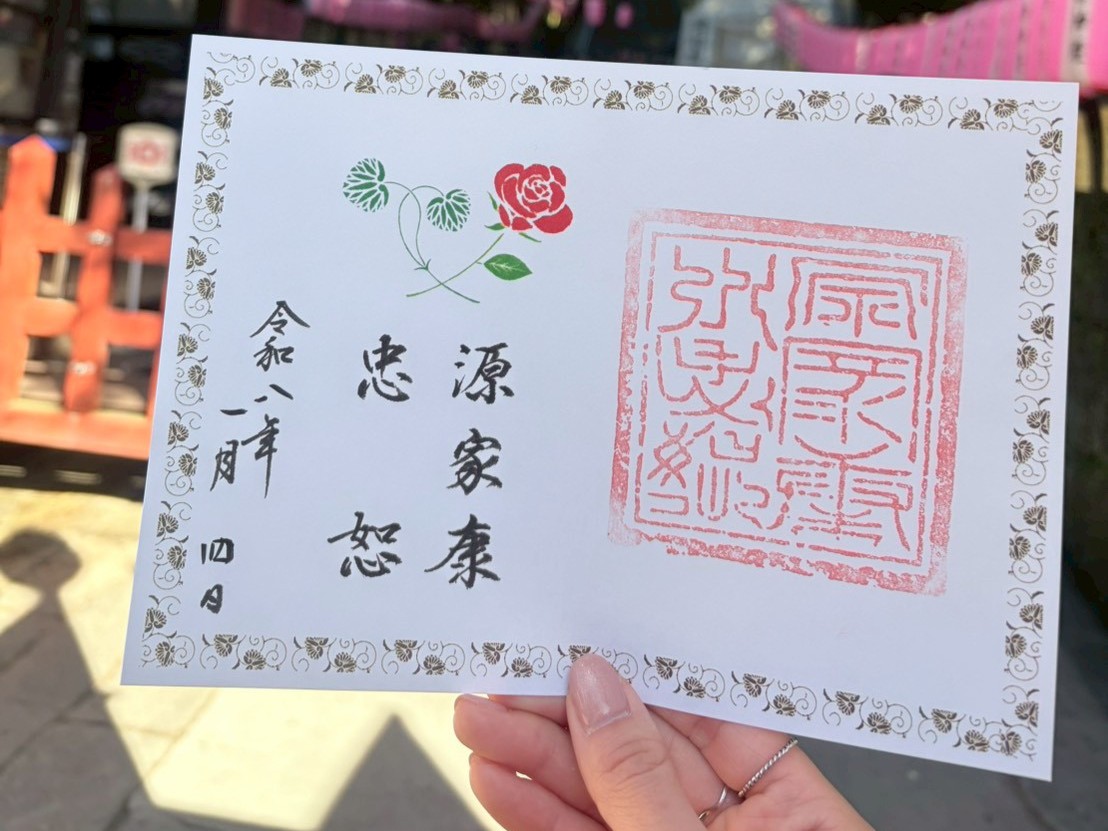 源家康
忠恕
令和八年
二月四日